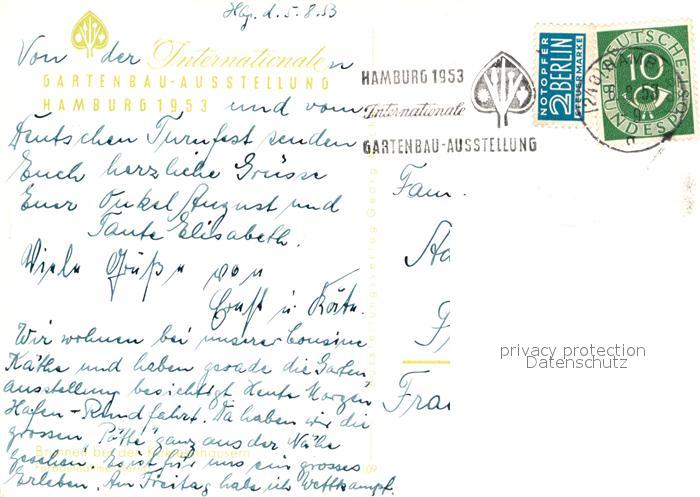 Hbg. d. 5.8.53
Von der Internationalen
GARTENBAU-AUSSTELLUNG
HAMBURG 1953 und vom
Deutschen Turnfest senden
Euch herzliche Grüsse
Euer Onkel August und
Tante Elisabeth.
Viele Grüße von
Ernst u. Käte.
Wir wohnen bei unserer Cousine
Käthe und haben gerade die Garten
ausstellung besichtigt. Heute Morgen
Hafen-Rundfahrt. Da haben wir die
grossen "Pötte" ganz aus der Nähe
gesehen. Es ist für uns ein grosses
Erleben. Am Freitag habe ich Wettkampf.
HAMBURG 1953
Internationale
GARTENBAU-AUSSTELLUNG
NOTOPFER
2 BERLIN
STEUERMARKE
DEUTSCHE
10
BUNDESPOST
Fam.
privacy protection
Datenschutz